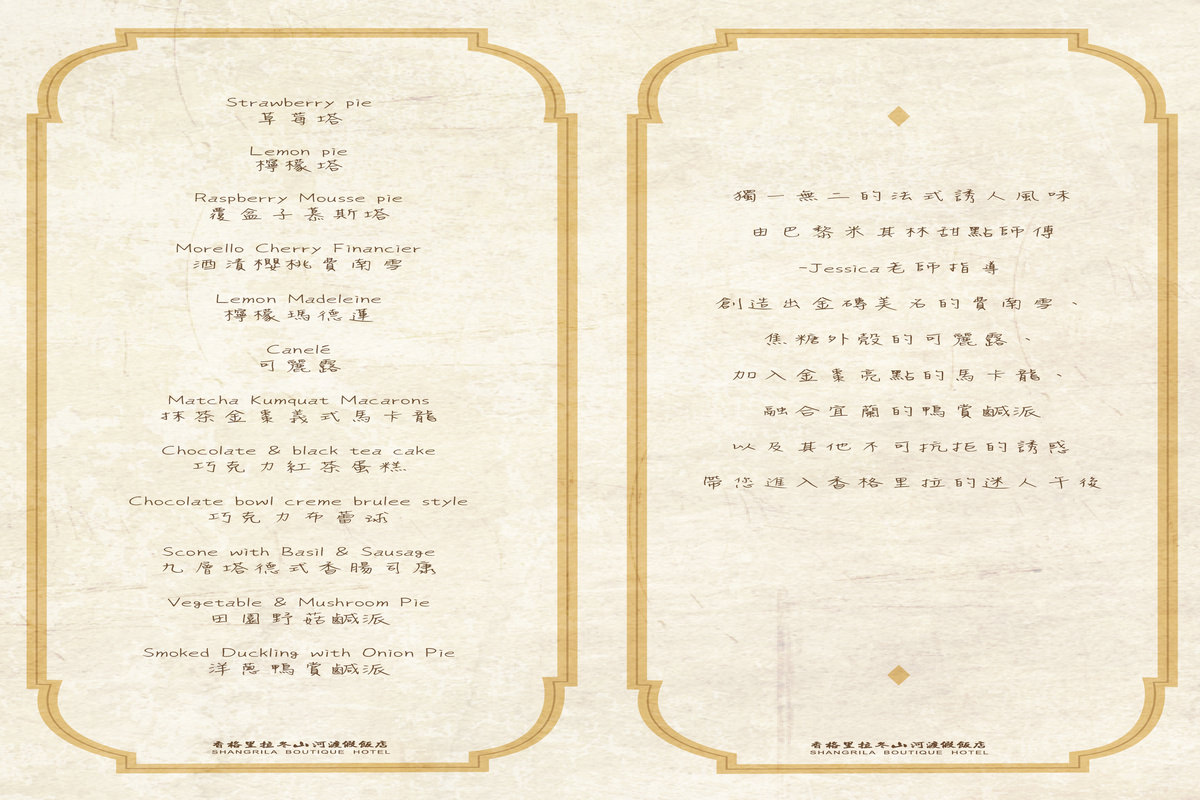 Strawberry pie
草莓塔
Lemon pie
檸檬塔
Raspberry Mousse pie
覆盆子慕斯塔
Morello Cherry Financier
酒漬櫻桃費南雪
Lemon Madeleine
檸檬瑪德蓮
Canelé
可麗露
Matcha Kumquat Macarons
抹茶金棗義式馬卡龍
Chocolate & black tea cake
巧克力紅茶蛋糕
Chocolate bowl creme brulee style
巧克力布蕾球
Scone with Basil & Sausage
九層塔德式香腸司康
Vegetable & Mushroom Pie
田園野菇鹹派
Smoked Duckling with Onion Pie
洋蔥鴨賞鹹派
香格里拉冬山河渡假飯店
SHANGRILA BOUTIQUE HOTEL
獨一無二的法式誘人風味
由巴黎米其林甜點師傅
-Jessica老師指導
創造出金磚美名的費南雪、
焦糖外殼的可麗露、
加入金棗亮點的馬卡龍、
融合宜蘭的鴨賞鹹派
以及其他不可抗拒的誘惑
帶您進入香格里拉的迷人午後
香格里拉冬山河渡假飯店
SHANGRILA BOUTIQUE HOTEL